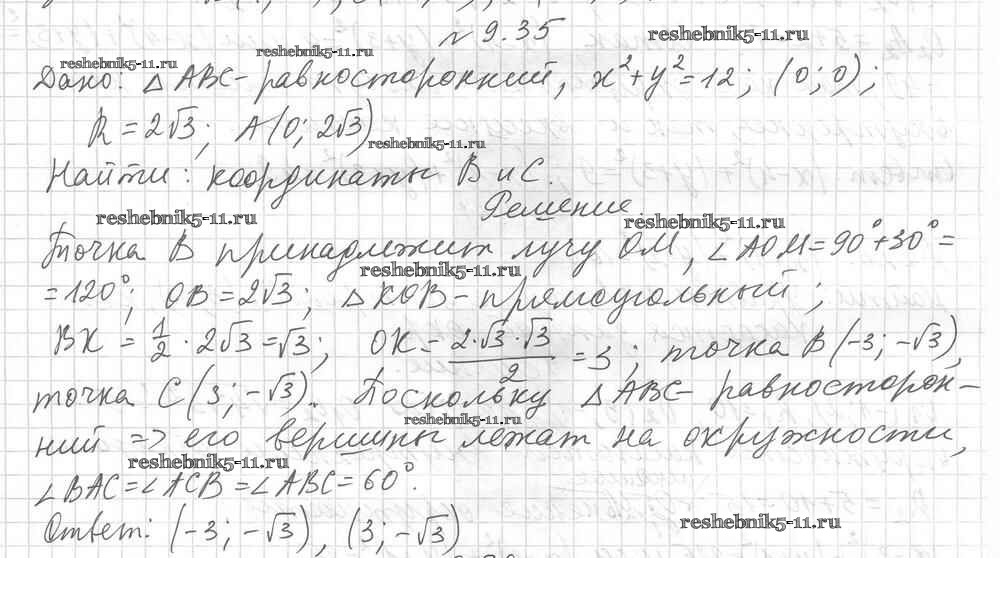 № 9.35
reshebnik5-11.ru
reshebnik5-11.ru
reshebnik5-11.ru
Дано: △ ABC - равносторонний, x²+y²=12; (0; 0);
R = 2√3; A(0; 2√3)
reshebnik5-11.ru
Найти: координаты B и C.
Решение.
reshebnik5-11.ru
reshebnik5-11.ru
Точка B принадлежит лучу OM, ∠AOM=90°+30°=
reshebnik5-11.ru
=120°; OB=2√3; △KOB-прямоугольный;
BK = 1/2 · 2√3 =√3; OK= 2·√3·√3/2 =3; точка B(-3; -√3),
точка C(3; -√3). Поскольку △ABC- равносторон-
reshebnik5-11.ru
ний => его вершины лежат на окружности,
reshebnik5-11.ru
∠BAC=∠ACB=∠ABC=60°.
Ответ: (-3; -√3), (3; -√3)
reshebnik5-11.ru